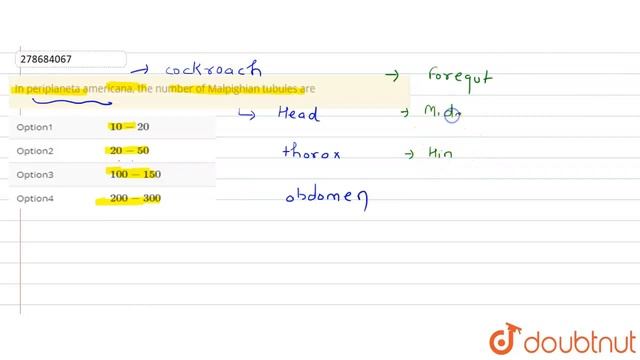 278684067
→ cockroach
In periplaneta americana, the number of Malpighian tubules are
→ Foregut
Option1 10 – 20
↳ Head
→ Mid
Option2 20 – 50
thorax
→ Hin
Option3 100 – 150
Option4 200 – 300
abdomen
doubtnut